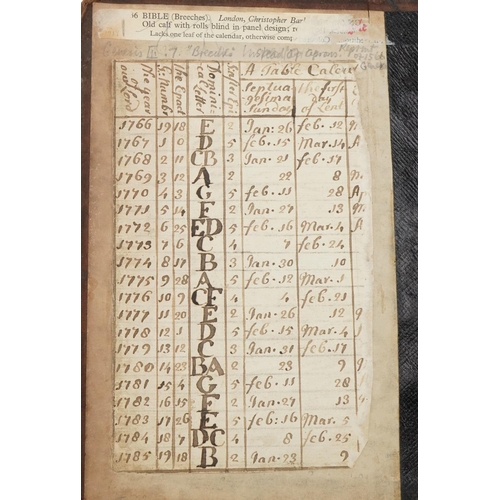 36 BIBLE (Breeches). London, Christopher Bar
Old calf with rolls blind in panel design; r
Lacks one leaf of the calendar, otherwise comp
Genesis III : 7. "Breeches" instead of aprons
The year of our Lord | G: Numbr | The Epact | Dominical Letter | Easter | A Table Calen
Septuagesima Sunday | the first Day of Lent
1766 19 18 E 2 Jan: 26 feb. 12
1767 1 0 D 5 feb. 15 Mar. 14 A
1768 2 11 CB 3 Jan. 21 feb. 17
1769 3 12 A 2 22 8
1770 4 3 G 5 feb. 11 28 Ap
1771 5 14 F 2 Jan. 27 13
1772 6 25 ED 5 feb. 16 Mar. 4 A
1773 7 6 C 4 7 feb. 24
1774 8 17 B 3 Jan. 30 10
1775 9 28 A 5 feb. 12 Mar. 1
1776 10 9 CF 4 4 feb. 21
1777 11 20 E 2 Jan. 26 12
1778 12 1 D 5 feb. 15 Mar. 4
1779 13 12 C 3 Jan. 31 feb. 17
1780 14 23 BA 2 23 9
1781 15 4 G 5 feb. 11 28
1782 16 15 F 2 Jan. 27 13
1783 17 26 E 5 feb: 16 Mar. 5
1784 18 7 DC 4 8 feb. 25
1785 19 18 B 2 Jan. 23 9